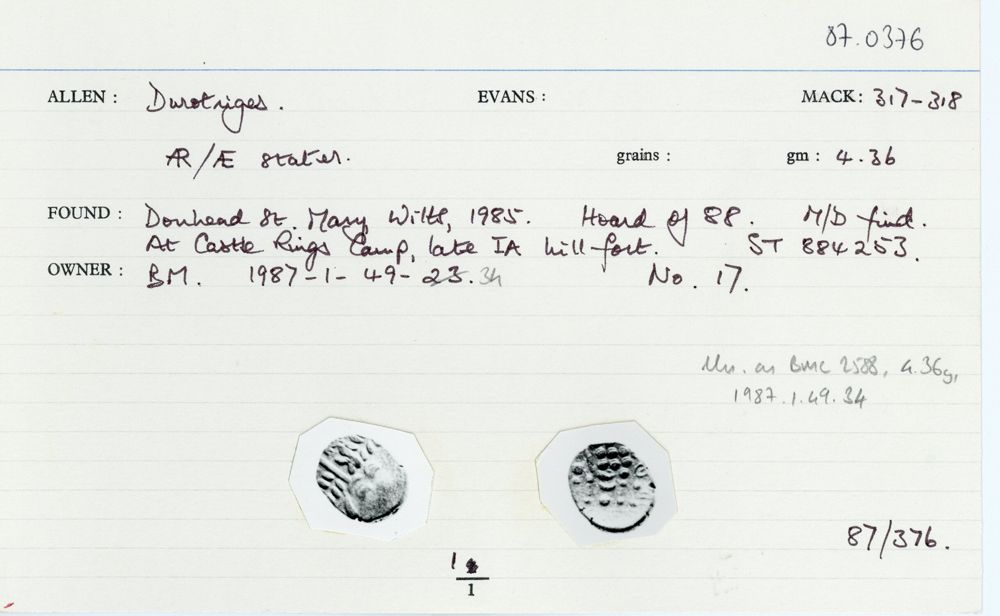 87.0376
ALLEN : Durotriges. EVANS : MACK: 317-318
AR/Æ stater. grains : gm : 4.36
FOUND : Donhead St. Mary, Wilts, 1985. Hoard of 88. M/D find.
At Castle Rings Camp, late IA hill fort. ST 884253.
OWNER : BM. 1987-1-49-23.34 No. 17.
as BMC 2588, 4.36g,
1987.1.49.34
87/376.
1
1